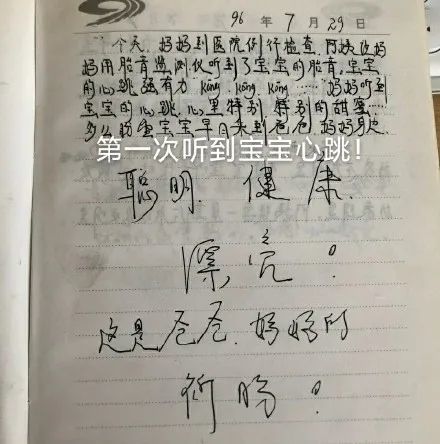 96 年 7 月 29 日
今天,妈妈到医院例行检查,阿姨给妈
妈用胎音监测仪听到了宝宝的胎音,宝宝
的心跳强有力 kōng kōng kōng……妈妈听到
宝宝的心跳,心里特别特别的甜蜜……
多么盼望宝宝早日来到爸爸妈妈身边
第一次听到宝宝心跳!
聪明、健康
漂亮!
这是爸爸、妈妈的
祈盼!